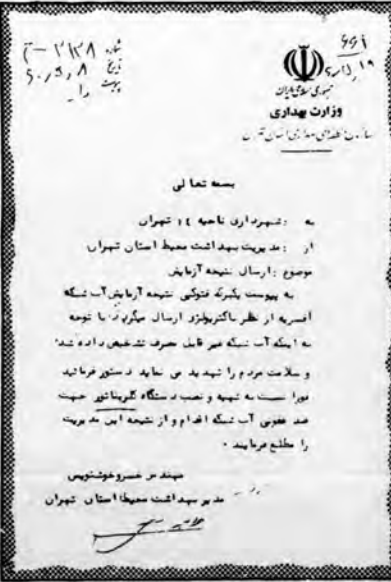 شماره ۲۱۳۸ - ۳
تاریخ ۶۰٫۵٫۸
پیوست دارد
۶۶۱
جمهوری اسلامی ایران
وزارت بهداری
سازمان منطقه‌ای بهداری استان تهران
بسمه تعالی
به : شهرداری ناحیه ۱٤ تهران
از : مدیریت بهداشت محیط استان تهران
موضوع : ارسال نتیجه آزمایش
به پیوست یکبرگ فتوکپی نتیجه آزمایش آب شبکه
افسریه از نظر باکتریولژی ارسال میگردد با توجه
به اینکه آب شبکه غیر قابل مصرف تشخیص داده شده
و سلامت مردم را تهدید می نماید دستور فرمائید
فورا نسبت به تهیه و نصب دستگاه کلریناتور جهت
ضد عفونی آب شبکه اقدام و از نتیجه این مدیریت
را مطلع فرمایند .
مهندس خسرو خوشنویس
مدیر بهداشت محیط استان تهران